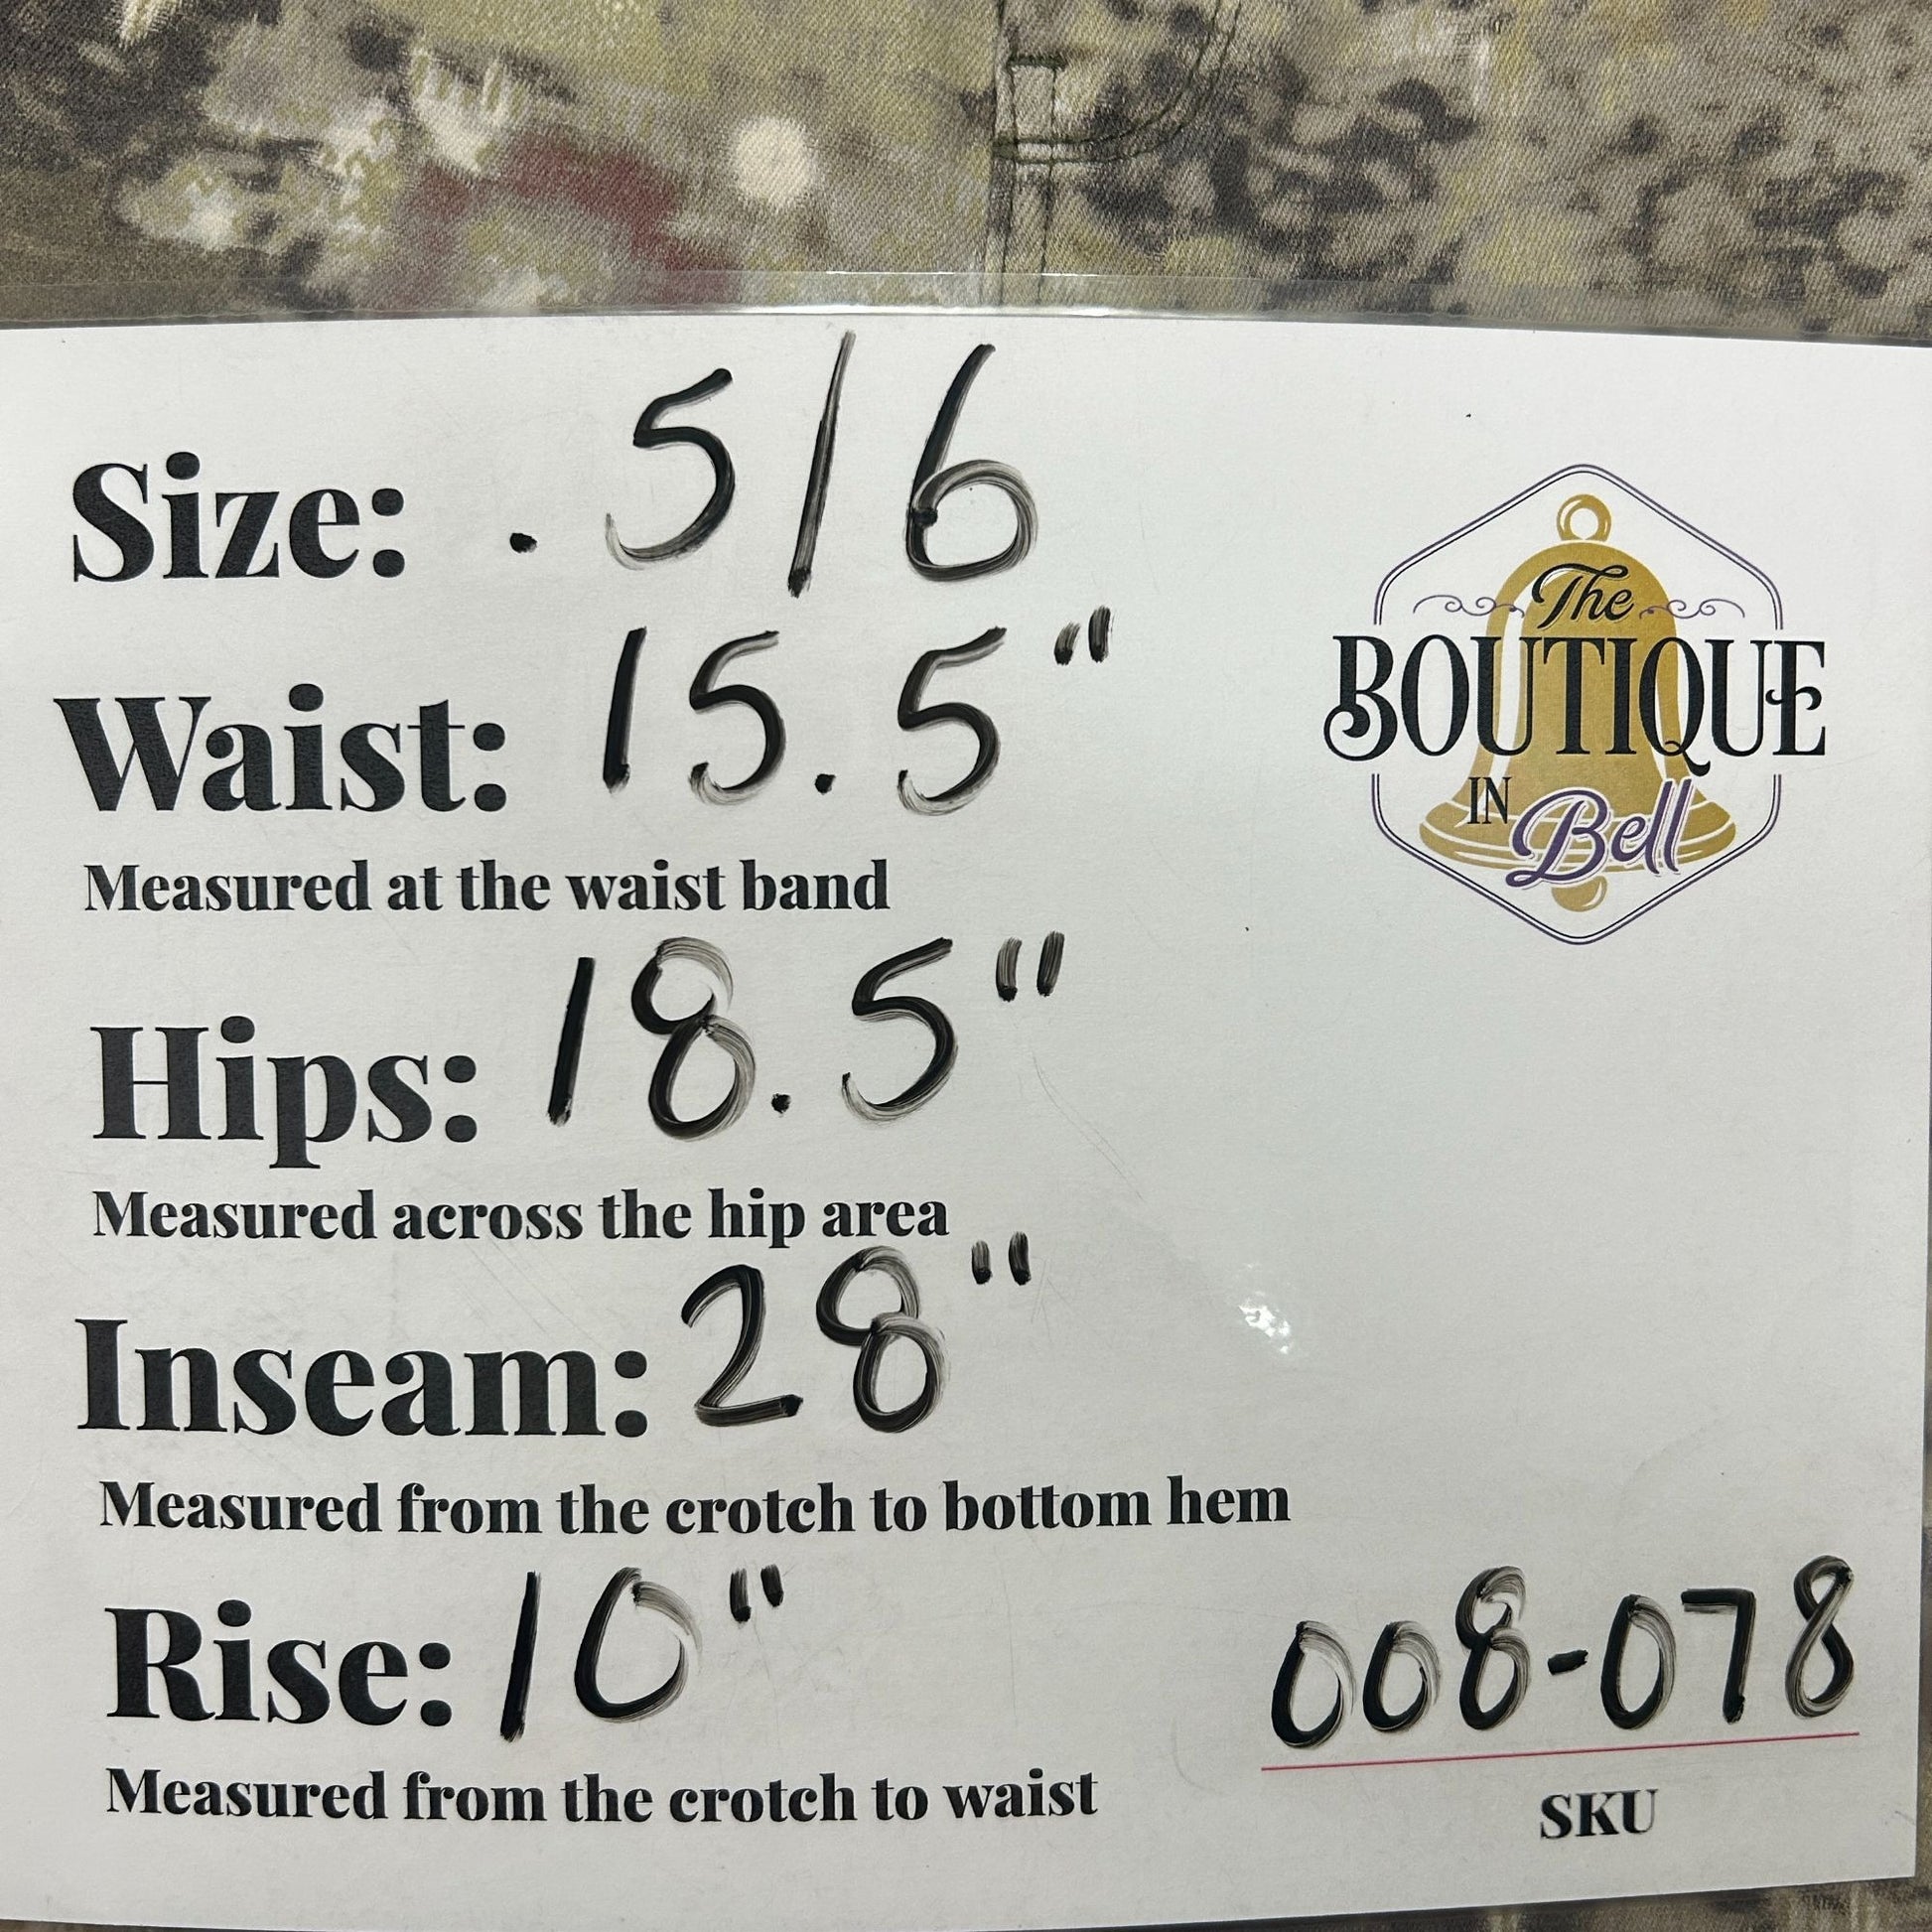 Size: .5/6
The
BOUTIQUE
IN Bell
Waist: 15.5"
Measured at the waist band
Hips: 18.5"
Measured across the hip area
Inseam: 28"
Measured from the crotch to bottom hem
Rise: 10"
Measured from the crotch to waist
008-078
SKU